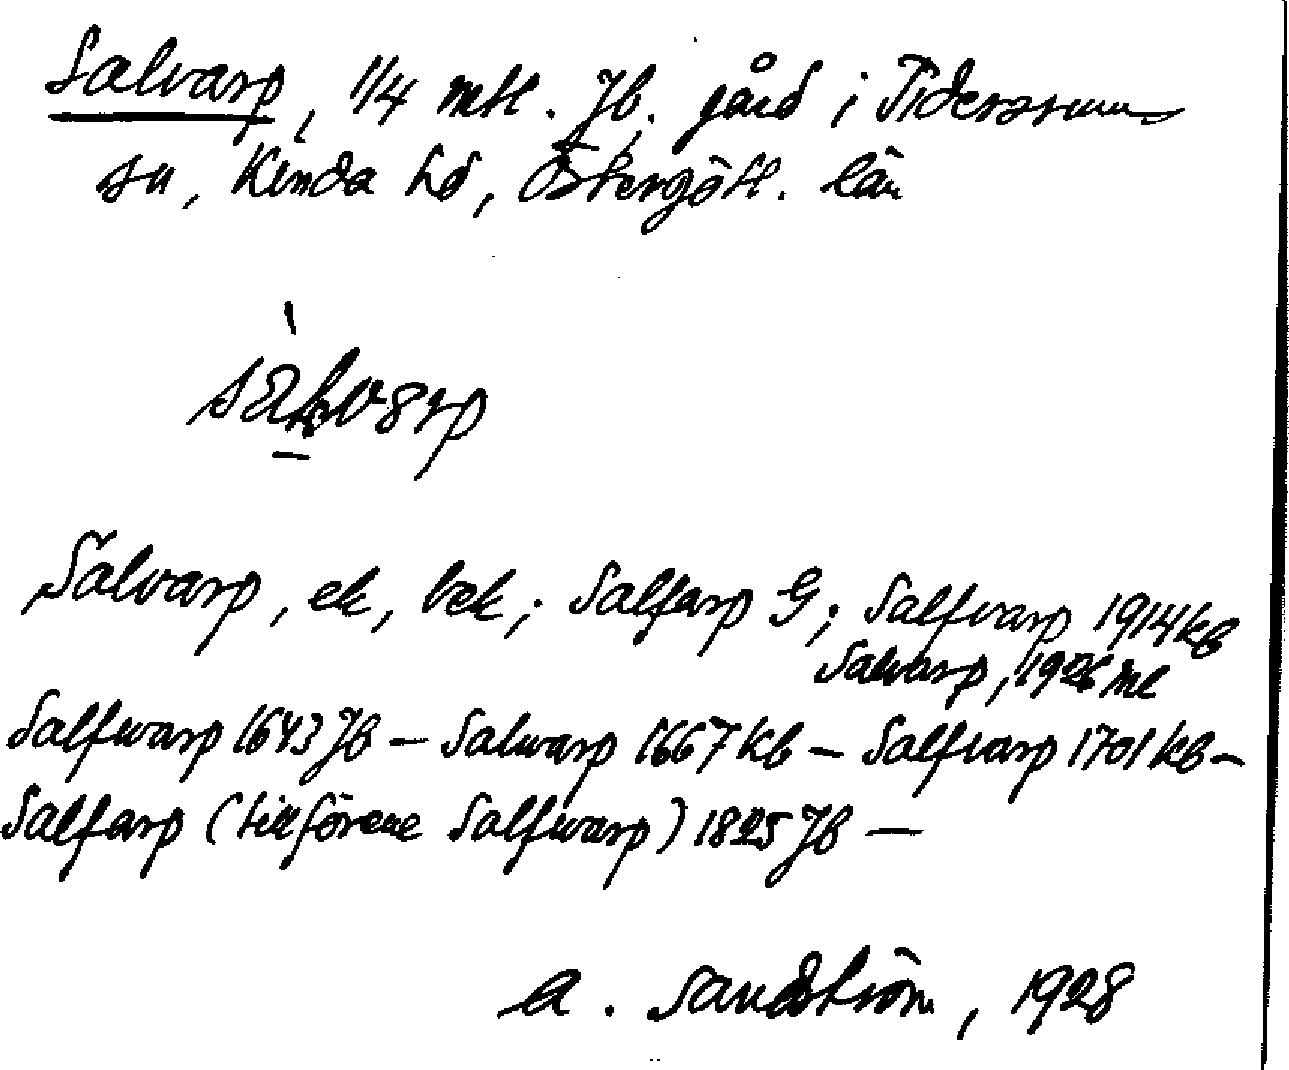 Salvarp, 1/4 mtl. Jb. gård i Tidersrum
sn, Kinda hd, Östergötl. län
Salvarp, ek, bek; Salfarp G; Salfvarp 1914 kb
Salvarp, 1926 ml
Salfwarp 1643 Jb – Salwarp 1667 Kb – Salfvarp 1701 Kb –
Salfarp (tillförene Salfwarp) 1825 Jb –
A. Sandström, 1928